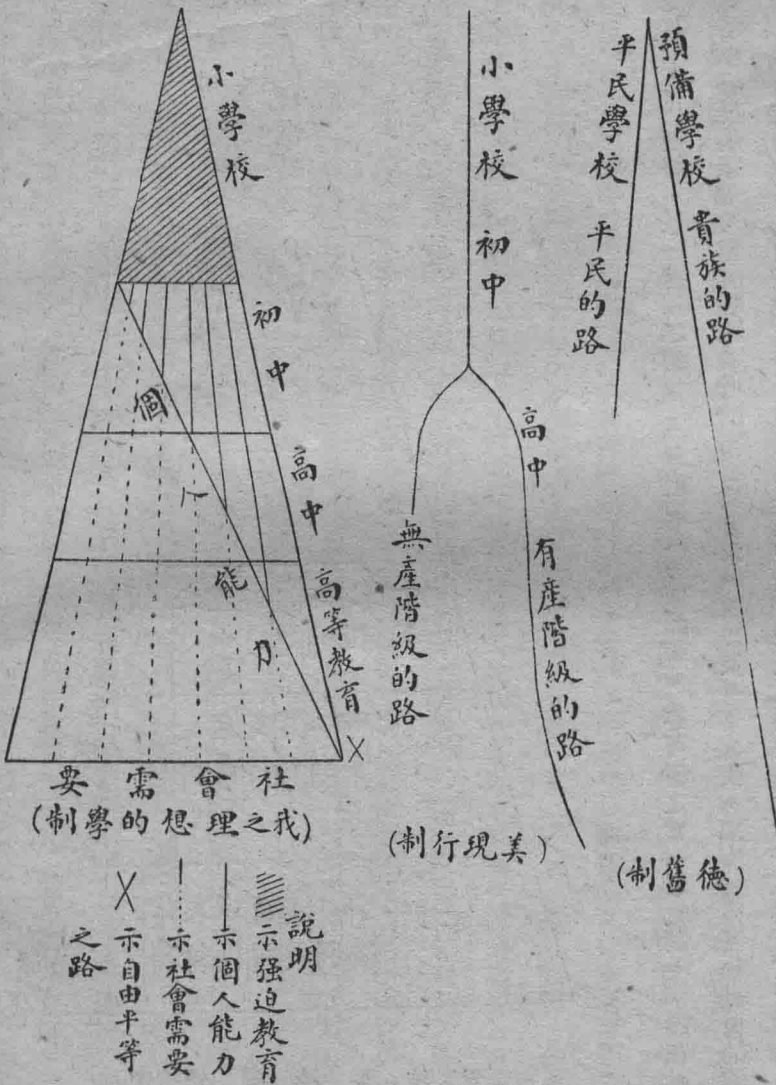 預備學校 貴族的路
平民學校 平民的路
(德舊制)
小學校 初中
高中 有產階級的路
無產階級的路
(美現行制)
小學校
初中
高中
高等教育
個人能力
X
社會需要
(我之理想的學制)
說明
示强迫教育
示個人能力
示社會需要
X 示自由平等
之路